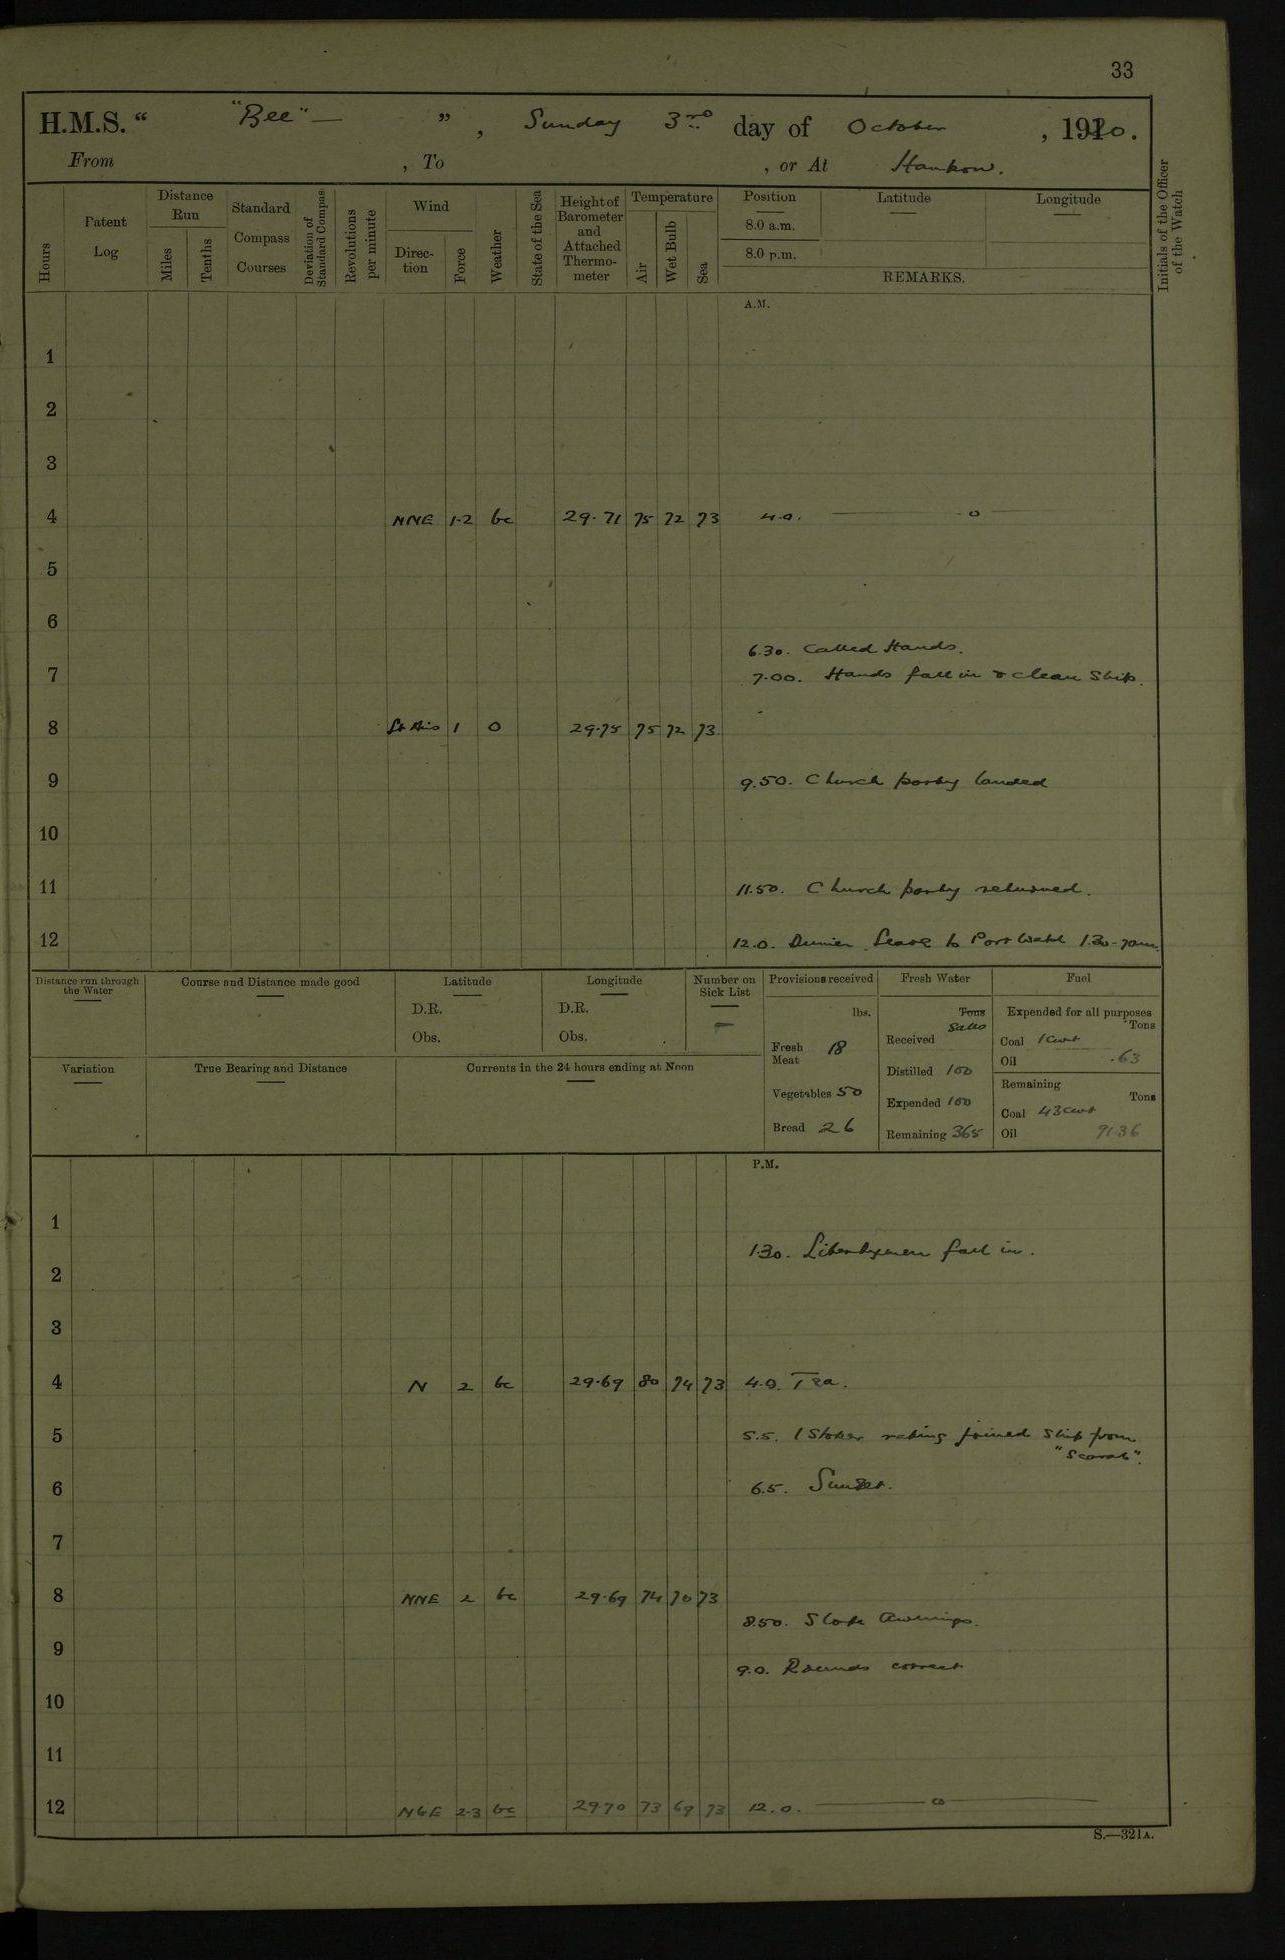 33
H.M.S. "Bee"— ", Sunday 3rd day of October, 1920.
From , To , or At Hankow.
Hours
Patent Log
Distance Run
Miles
Tenths
Standard Compass Courses
Deviation of Standard Compass
Revolutions per minute
Wind
Direction
Force
Weather
State of the Sea
Height of Barometer and Attached Thermometer
Temperature
Air
Wet Bulb
Sea
Position
8.0 a.m.
8.0 p.m.
Latitude
Longitude
REMARKS.
Initials of the Officer of the Watch
A.M.
1
2
3
4 NNE 1-2 bc 29.71 75 72 73 4.0. ——— o ———
5
6
6.30. Called Hands.
7 7.00. Hands fall in & clean Ship.
8 Lt Airs 1 O 29.75 75 72 73
9 9.50. Church party landed
10
11 11.50. Church party returned.
12 12.0. Dinner. Leave to Port Watch 1.30-7am.
Distance run through the Water
Course and Distance made good
Latitude
D.R.
Obs.
Longitude
D.R.
Obs.
Number on Sick List
—
Provisions received
lbs.
Fresh Meat 18
Vegetables 50
Bread 26
Fresh Water
Tons
Galls
Received
Distilled 100
Expended 100
Remaining 365
Fuel
Expended for all purposes
Tons
Coal 1 cwt
Oil .63
Remaining
Tons
Coal 43 cwt
Oil 91.36
Variation
True Bearing and Distance
Currents in the 24 hours ending at Noon
P.M.
1
1.30. Libertymen fall in.
2
3
4 N 2 bc 29.69 80 74 73 4.0. Tea.
5 5.5. 1 Stoker rating joined Ship from "Scarab".
6 6.5. Sunset.
7
8 NNE 2 bc 29.69 74 70 73
8.50. Slope Awnings.
9 9.0. Rounds correct
10
11
12 NbE 2-3 bc 29.70 73 69 73 12.0. ——— o ———
S.—321A.